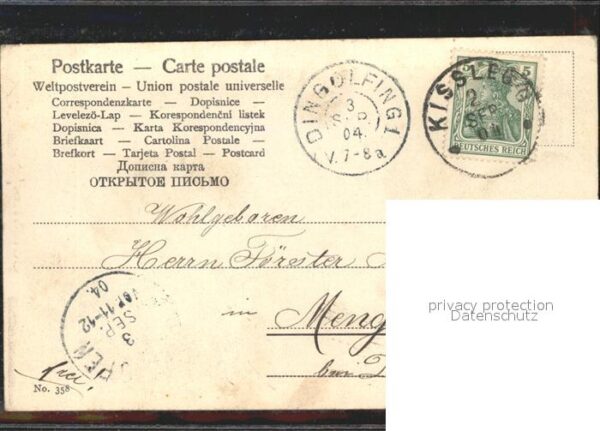 Postkarte — Carte postale
Weltpostverein — Union postale universelle
Correspondenzkarte — Dopisnice —
Levelező-Lap — Korespondenční listek
Dopisnica — Karta Korespondencyjna
Briefkaart — Cartolina Postale —
Brefkort — Tarjeta Postal — Postcard
Дописна карта
ОТКРЫТОЕ ПИСЬМО
DINGOLFING 1
3
SEP
04.
V. 7-8a
KISSLEGG
2
SEP
04
5
DEUTSCHES REICH
Wohlgeboren
Herrn Förster
in Meng
bei
3
SEP.
04.
11-12
EN
frei!
No. 358
privacy protection
Datenschutz